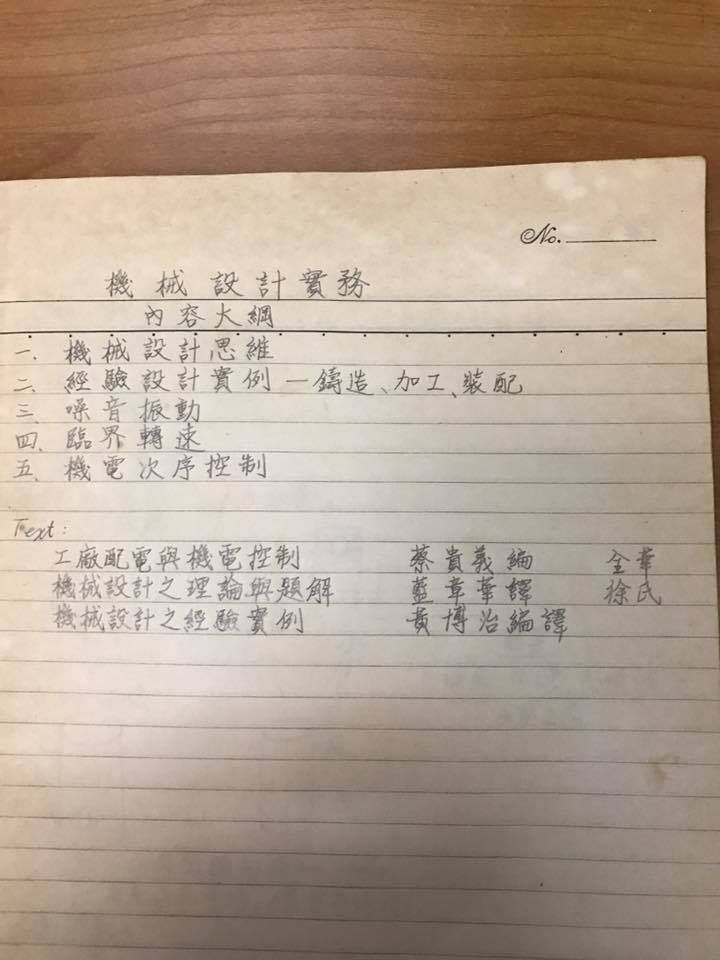 No.
機械設計實務
內容大綱
一、機械設計思維
二、經驗設計實例—鑄造、加工、裝配
三、噪音振動
四、臨界轉速
五、機電次序控制
Text:
工廠配電與機電控制 蔡貴義編 全華
機械設計之理論與題解 藍章華譯 徐氏
機械設計之經驗實例 黃博治編譯